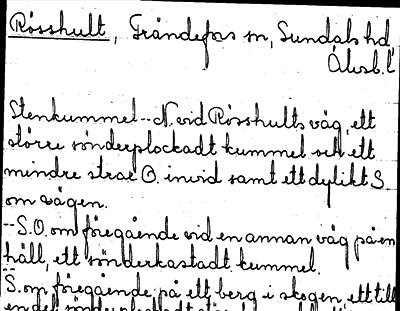 Rösshult, Frändefors sn, Sundals hd,
Älvsb. l.
Stenkummel -- N. vid Rösshults väg, ett
större sönderplockadt kummel och ett
mindre strax O. invid samt ett dylikt S.
om vägen.
-- S.O. om föregående vid en annan väg på en
håll, ett sönderkastadt kummel.
S. om föregående på ett berg i skogen, ett till
en del